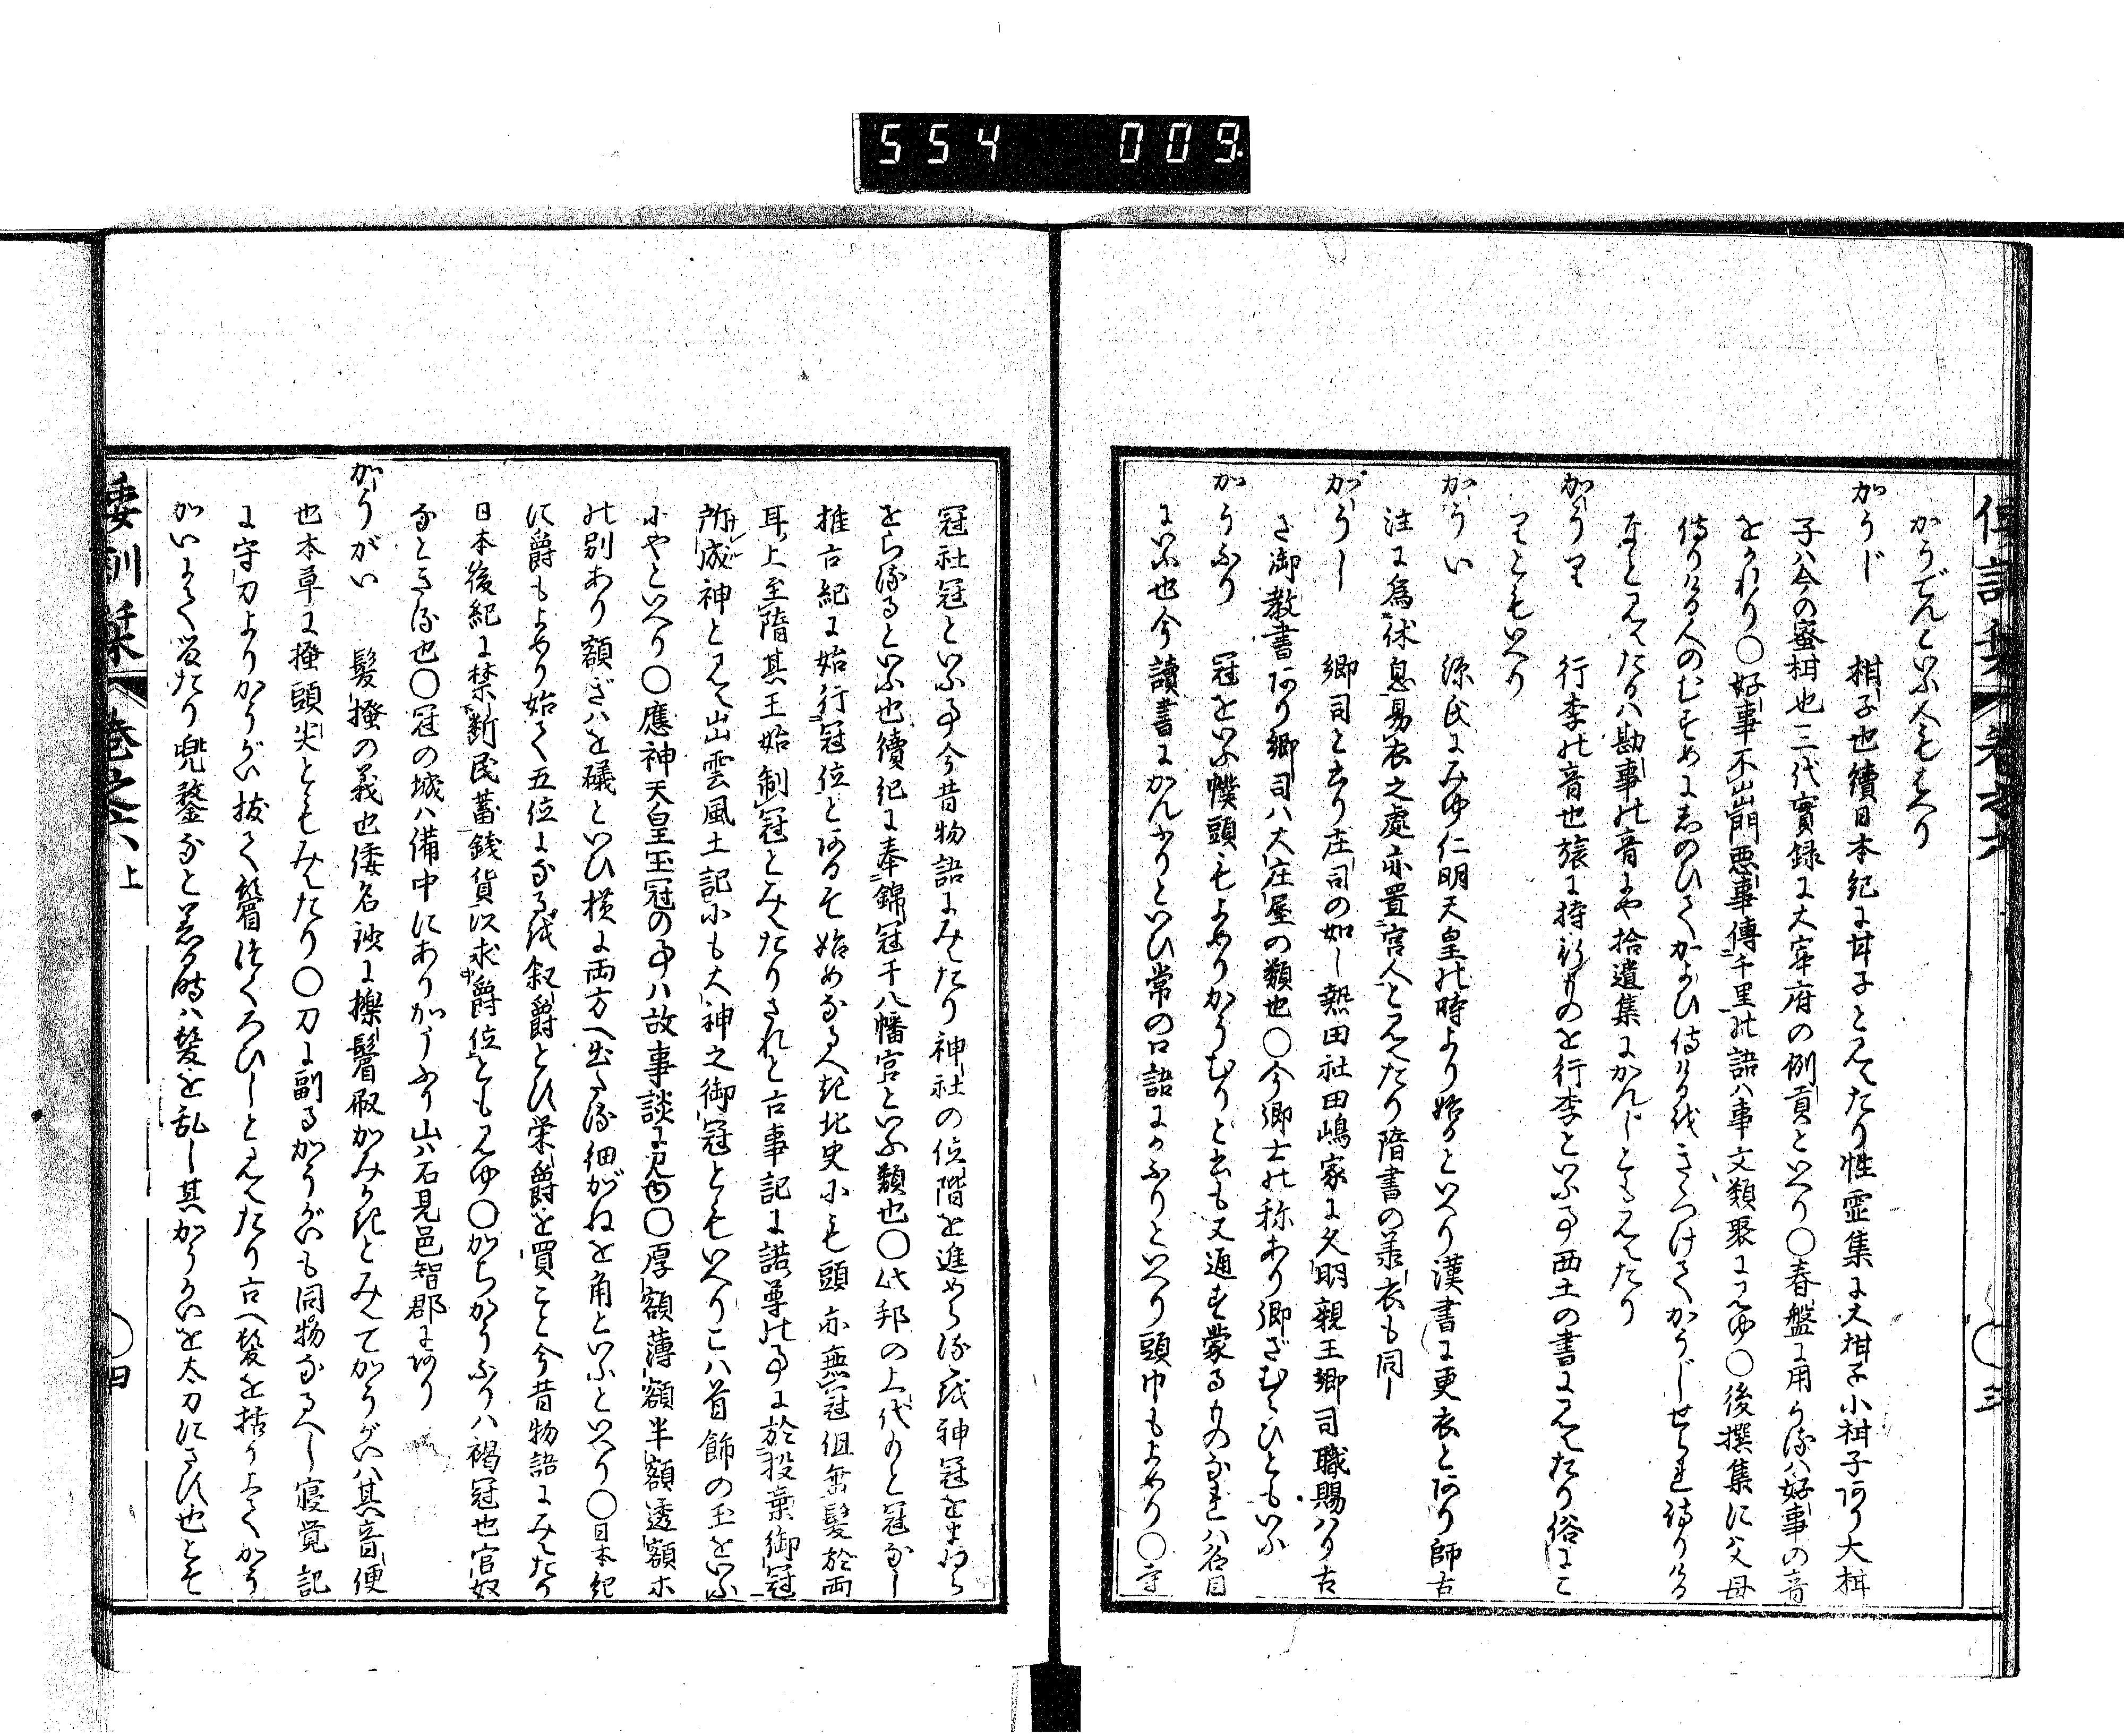 554 009
かうでんといふ人もをへり
かうじ 柑子也續日本紀に甘子と見えたり性霊集に大柑子小柑子あり大柑
子ハ今の蜜柑也三代實録に大宰府の例貢といへり〇春盤に用うるハ好事の音
をかれり〇好事不出門悪事傳千里の語ハ事文類聚に見ゆ〇後撰集に父母
侍りける人のむすめにしのひてかよひ侍けるをきゝつけてかうじせられ侍りける
なと見えたるハ勘事の音にや拾遺集にかんじとも見えたり
かうり 行李の音也旅に持行ものを行李といふ事西土の書に見えたり俗にこ
りともいへり
かうい 源氏にみゆ仁明天皇の時より始るといへり漢書に更衣とあり師古
注に為休息易衣之處亦置宮人と見えたり隋書の羕衣も同し
がうし 郷司と書り庄司の如し熱田社田嶋家に久明親王郷司職賜ハり古
き御教書あり郷司ハ大庄屋の類也〇今郷士の称あり郷ざむらひともいふ
かうふり 冠をいふ幞頭もよめりかうむりと書も又通す蒙るものなれハ名目
にいふ也今讀書にかんふりといひ常の口語にかふりといへり頭巾もよめり〇寺
冠社冠といふ事今昔物語にみえたり神社の位階を進めらるを神冠をまゐら
せらるゝといふ也續紀に奉錦冠于八幡宮といふ類也〇此邦の上代のと冠なし
推古紀に始行冠位とあるそ始めなるへき北史にも頭亦無冠但垂髪於両
耳上至隋其王始制冠とみえたりされと古事記に諾尊の事に於投棄御冠
所成神と見え出雲風土記にも大神之御冠ともいへりこハ首飾の玉をいふ
にやといへり〇應神天皇玉冠の事ハ故事談に見ゆ〇厚額薄額半額透額ホ
の別あり額ざハを礒といひ横に両方へ出たる細がねを角といふといへり〇日本紀
に爵もよめり始て五位になるを叙爵とす栄爵を買こと今昔物語にみえたり
日本後紀に禁断民蓄銭貨以求爵位とも見ゆ〇かちかうふりハ褐冠也官奴
なときる也〇冠の城ハ備中にありかうふり山ハ石見邑智郡にあり
かうがい 髪掻の義也倭名鈔に擽鬢㕞かみかきとみえてかうがいハ其音便
也本草に搔頭尖ともみえたり〇刀に副るかうがいも同物なるへし寝覚記
に守刀よりかうがい抜て鬢つくろひしと見えたり古へ髪を括りよくかう
がいよく當たり兜鍪なと着る時ハ髪を乱し其かうがいを太刀にさす也とそ
倭訓栞 巻之六 三
倭訓栞 巻之六上 四